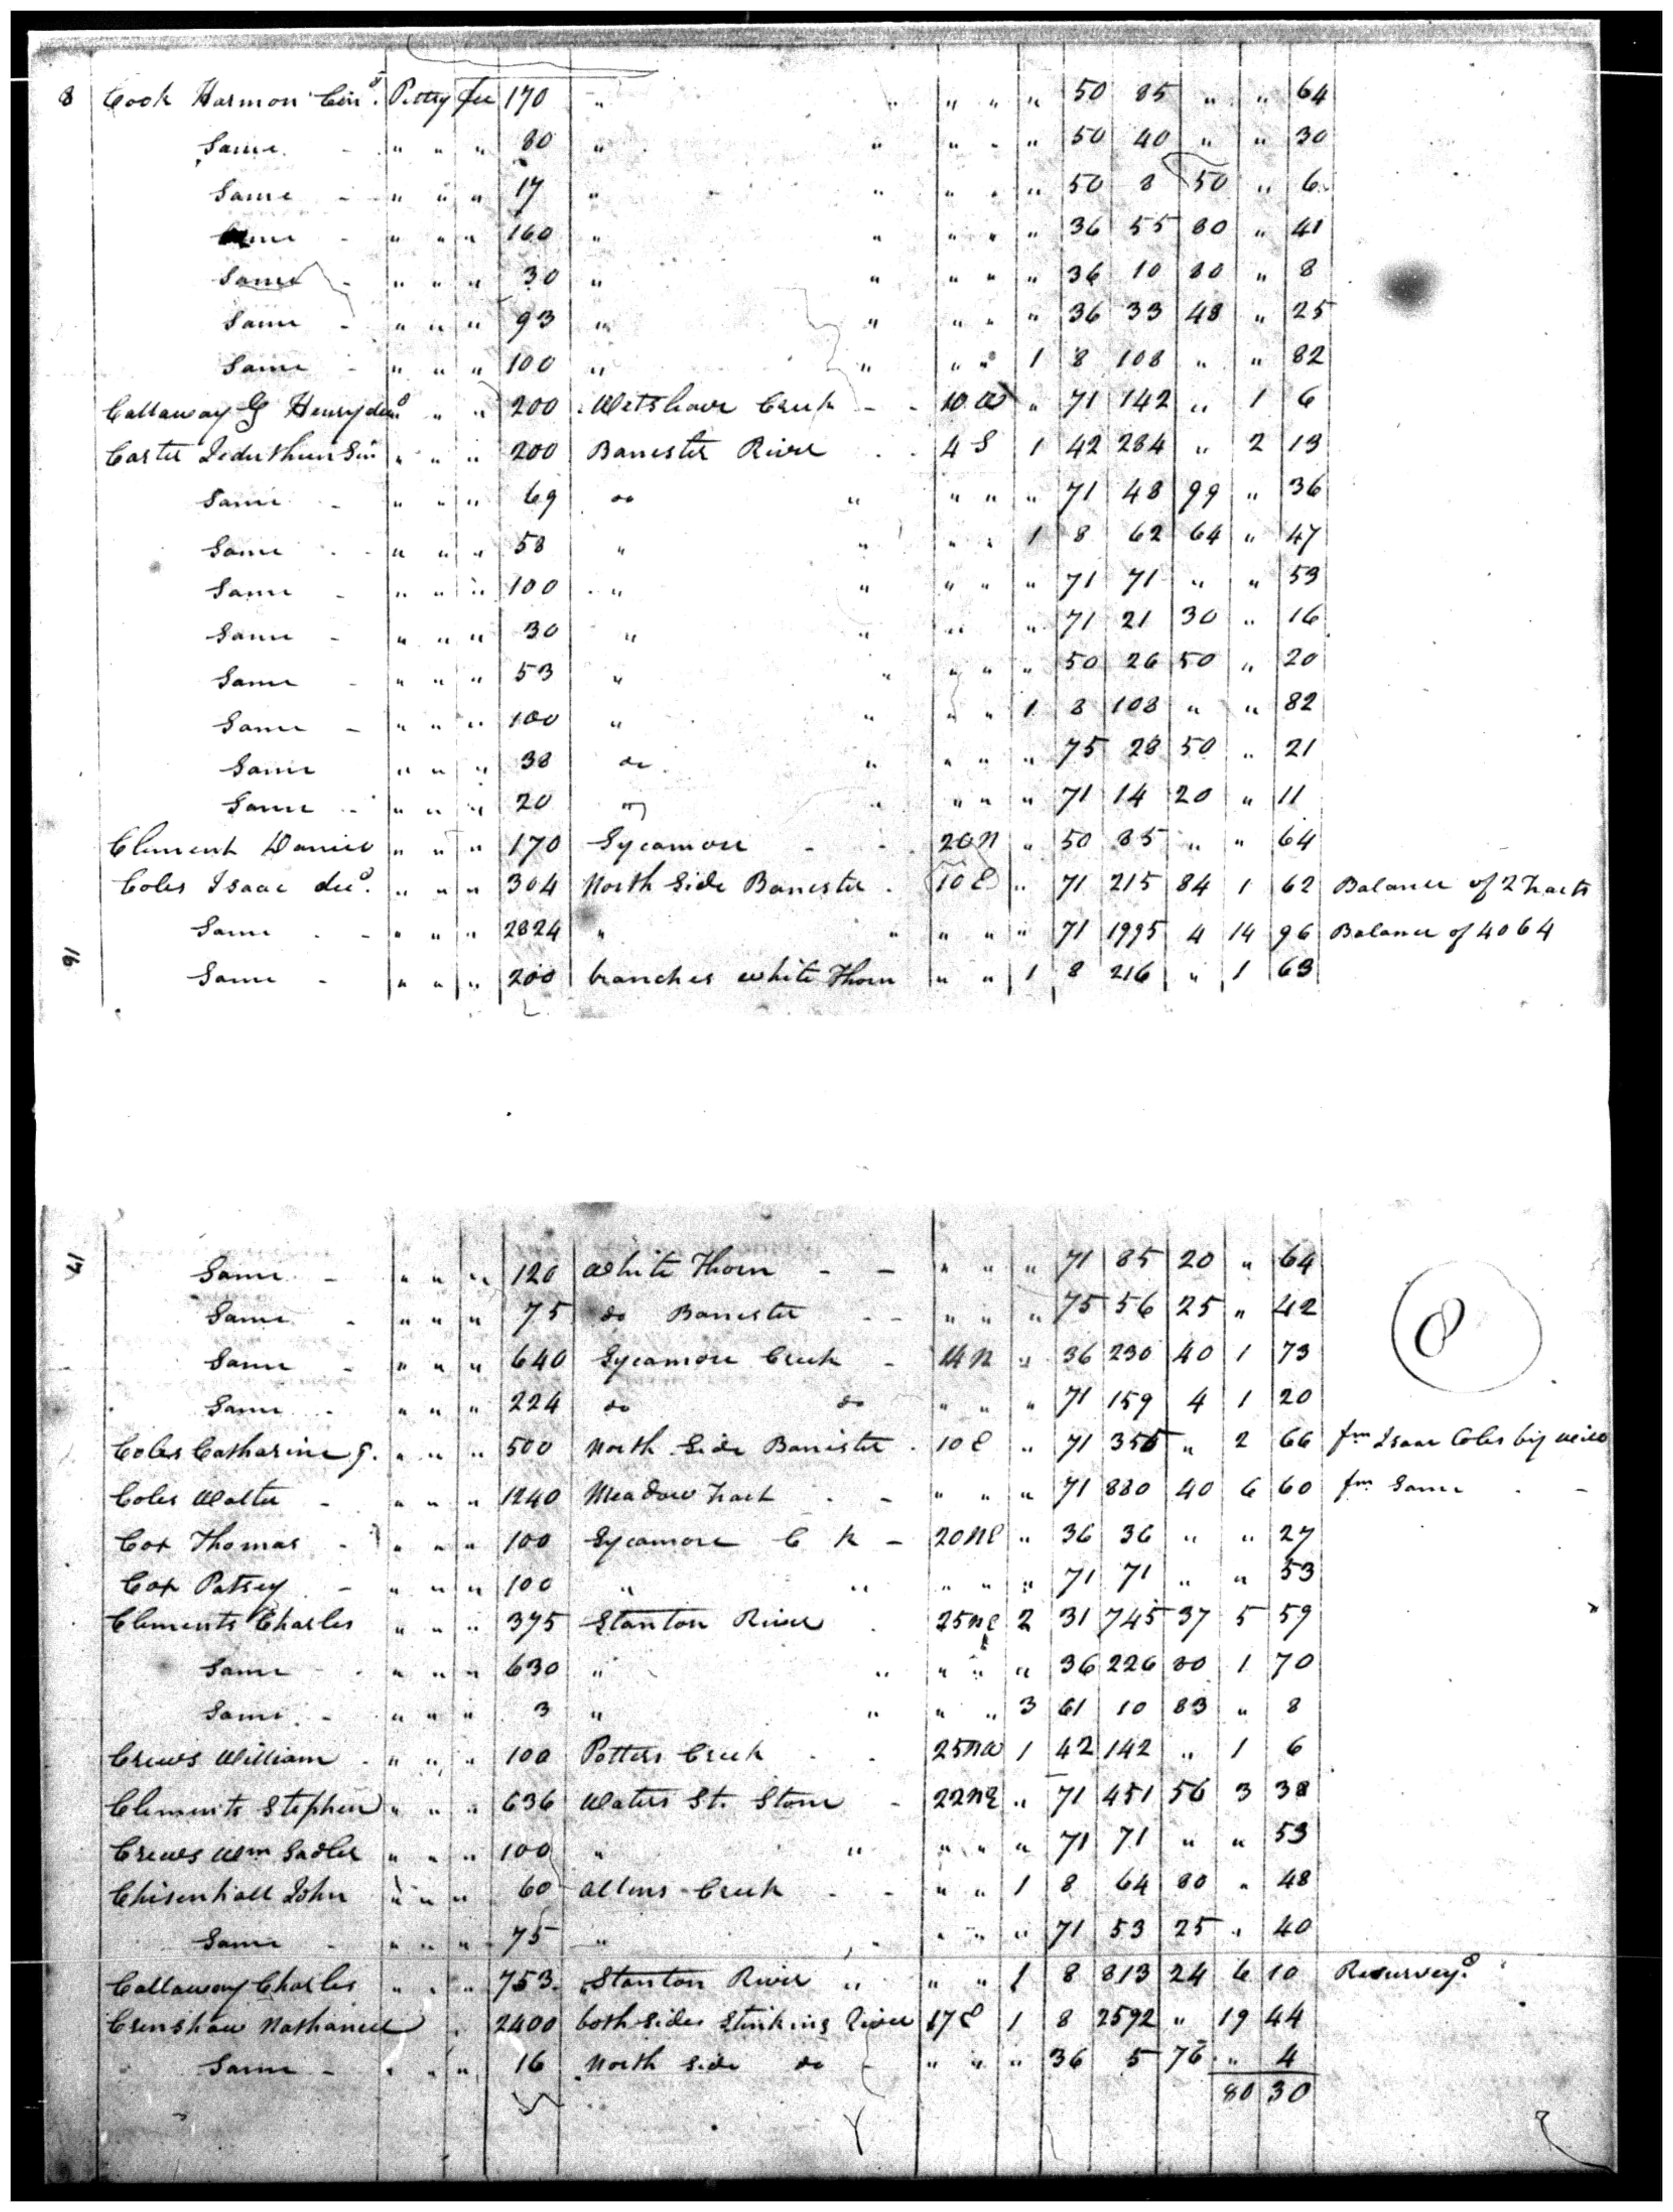 8 Cook Harmon Cin^r. Pittsy fee 170 " " " " " 50 85 " " 64
Same - " " " 80 " " " " " 50 40 " " 30
Same - " " " 17 " " " " " 50 8 50 " 6
Same - " " " 160 " " " " " 36 55 80 " 41
Same - " " " 30 " " " " " 36 10 80 " 8
Same - " " " 93 " " " " " 36 33 48 " 25
Same - " " " 100 " " " " 1 8 108 " " 82
Callaway G Henry dec^d " " " 200 Creek - - 10 W " 71 142 " 1 6
Carter Jeduthun Sin " " " 200 Banester River - - 4 S 1 42 284 " 2 13
Same - " " " 69 do " " " " 71 48 99 " 36
Same - " " " 58 " " " " 1 8 62 64 " 47
Same - " " " 100 " " " " " 71 71 " " 53
Same - " " " 30 " " " " 71 21 30 " 16
Same - " " " 53 " " " " " 50 26 50 " 20
Same - " " " 100 " " " " 1 8 108 " " 82
Same " " " 38 do " " " " 75 28 50 " 21
Same - " " " 20 " " " " 71 14 20 " 11
Clement Daniel " " " 170 Sycamore - - 20 N " 50 85 " " 64
Coles Isaac dec^d. " " " 304 North Side Banester - 10 E " 71 215 84 1 62 Balance of 2 Tracts
Same - - " " " 2824 " " " " " 71 1995 4 14 96 Balance of 4064
16
Same - " " " 200 branches white Thorn " " 1 8 216 " 1 63
17
Same - " " " 120 White Thorn - - " " " 71 85 20 " 64
Same - " " " 75 do Banester - - " " " 75 56 25 " 42
8
Same - " " " 640 Sycamore Creek - 14 N " 36 230 40 1 73
Same - " " " 224 do do " " " 71 159 4 1 20
Coles Catharine G. " " " 500 North Side Banister - 10 E " 71 355 " 2 66 fm Isaac Coles by will
Coles Walter - " " " 1240 Meadow Tract - - " " " 71 880 40 6 60 fm Same - -
Cox Thomas - " " " 100 Sycamore C K - 20 NE " 36 36 " " 27
Cox Patsey - " " " 100 " " " " " 71 71 " " 53
Clements Charles " " " 375 Stanton River - 25 NE 2 31 745 37 5 59
Same - - " " " 630 " " " " " 36 226 80 1 70
Same - " " " 3 " " " " 3 61 10 83 " 8
Crews William - " " " 100 Potters Creek - - 25 NW 1 42 142 " 1 6
Clements Stephen " " " 636 Waters St. Stone - 22 NE " 71 451 56 3 38
Crews Wm Sadler " " " 100 " " " " " 71 71 " " 53
Chisenhall John " " " 60 Allens Creek - - " " 1 8 64 80 " 48
Same - " " " 75 " " " " " 71 53 25 " 40
Callaway Charles " " " 753 Stanton River " " " 1 8 813 24 6 10 Resurvey^d.
Crenshaw Nathaniel " 2400 both sides Stinking River 17 E 1 8 2592 " 19 44
Same - " " " 16 North side do - " " " 36 5 76 " 4
80 30